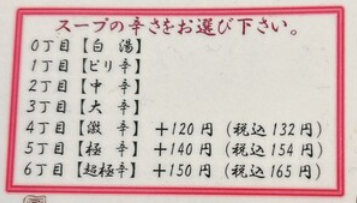 スープの辛さをお選び下さい。
0丁目【白 湯】
1丁目【ピリ辛】
2丁目【中 辛】
3丁目【大 辛】
4丁目【激 辛】 +120円(税込132円)
5丁目【極 辛】 +140円(税込154円)
6丁目【超極辛】 +150円(税込165円)